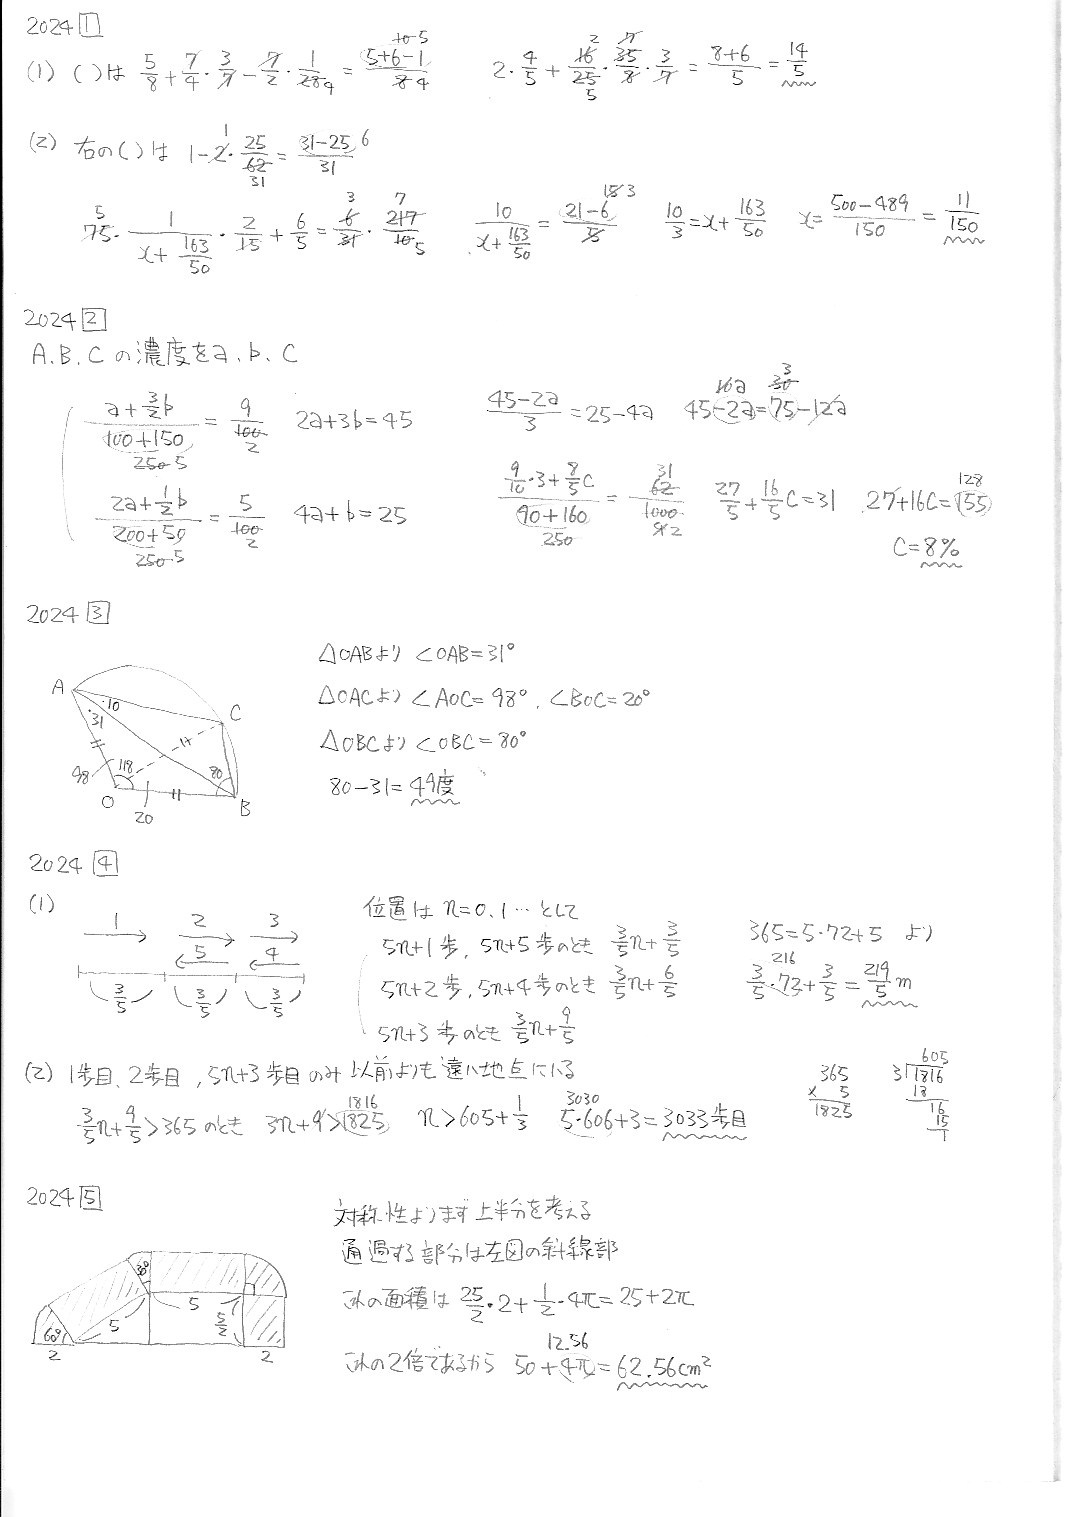 2024 1
(1) ( )は 5/8 + 7/4・3/7 − 7/2・1/28 4 = 5+6−1 10 5/8 4  2・4/5 + 16 2/25 5・35 7/8・3/7 = 8+6/5 = 14/5
(2) 右の( )は 1−2 1・25/62 31 = 31−25 6/31
75 5・1/(x+163/50)・2/15 + 6/5 = 6 3/31・217 7/10 5  10/(x+163/50) = 21−6 15 3/5  10/3 = x+163/50  x = 500−489/150 = 11/150
2024 2
A、B、Cの濃度をa、b、c
(a+3/2b)/(100+150) 250 5 = 9/100 2  2a+3b=45  (45−2a)/3 = 25−4a  45−2a=75−12a 10a 30 3
(2a+1/2b)/(200+50) 250 5 = 5/100 2  4a+b=25  (9/10・3+8/5c)/(90+160) 250 = 62 31/1000 2  27/5+16/5c=31  27+16c=155 128
c=8%
2024 3
△OABより ∠OAB=31°
△OACより ∠AOC=98°、∠BOC=20°
△OBCより ∠OBC=80°
80−31=49度
A 10 31 C 98 118 80 O 20 B
2024 4
(1)
1 2 3
5 4
3/5 3/5 3/5
位置は n=0、1…として
5n+1歩、5n+5歩のとき 3/5n+3/5
5n+2歩、5n+4歩のとき 3/5n+6/5
5n+3歩のとき 3/5n+9/5
365=5・72+5 より
3/5・72 216+3/5=219/5m
(2) 1歩目、2歩目、5n+3歩目のみ以前よりも遠い地点にいる
3/5n+9/5>365のとき 3n+9>1825 1816  n>605+1/3  5・606 3030+3=3033歩目
365
× 5
1825
605
3)1816
18
16
15
1
2024 5
対称性よりまず上半分を考える
通過する部分は左図の斜線部
これの面積は 25/2・2+1/2・4π=25+2π
これの2倍であるから 50+4π 12.56=62.56cm²
30° 60° 5 5 5/2 2 2